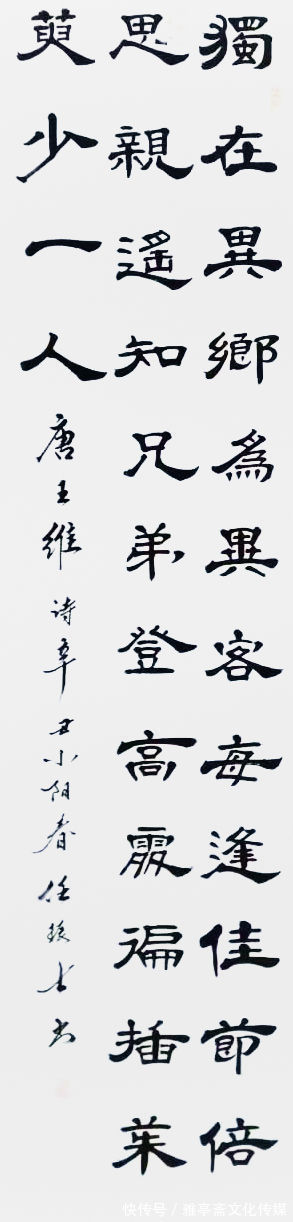 獨在異鄉爲異客每逢佳節倍
思親遙知兄弟登高處徧插茱
萸少一人
唐王維诗辛丑小阳春任书
快传号 / 雅亭斋文化传媒